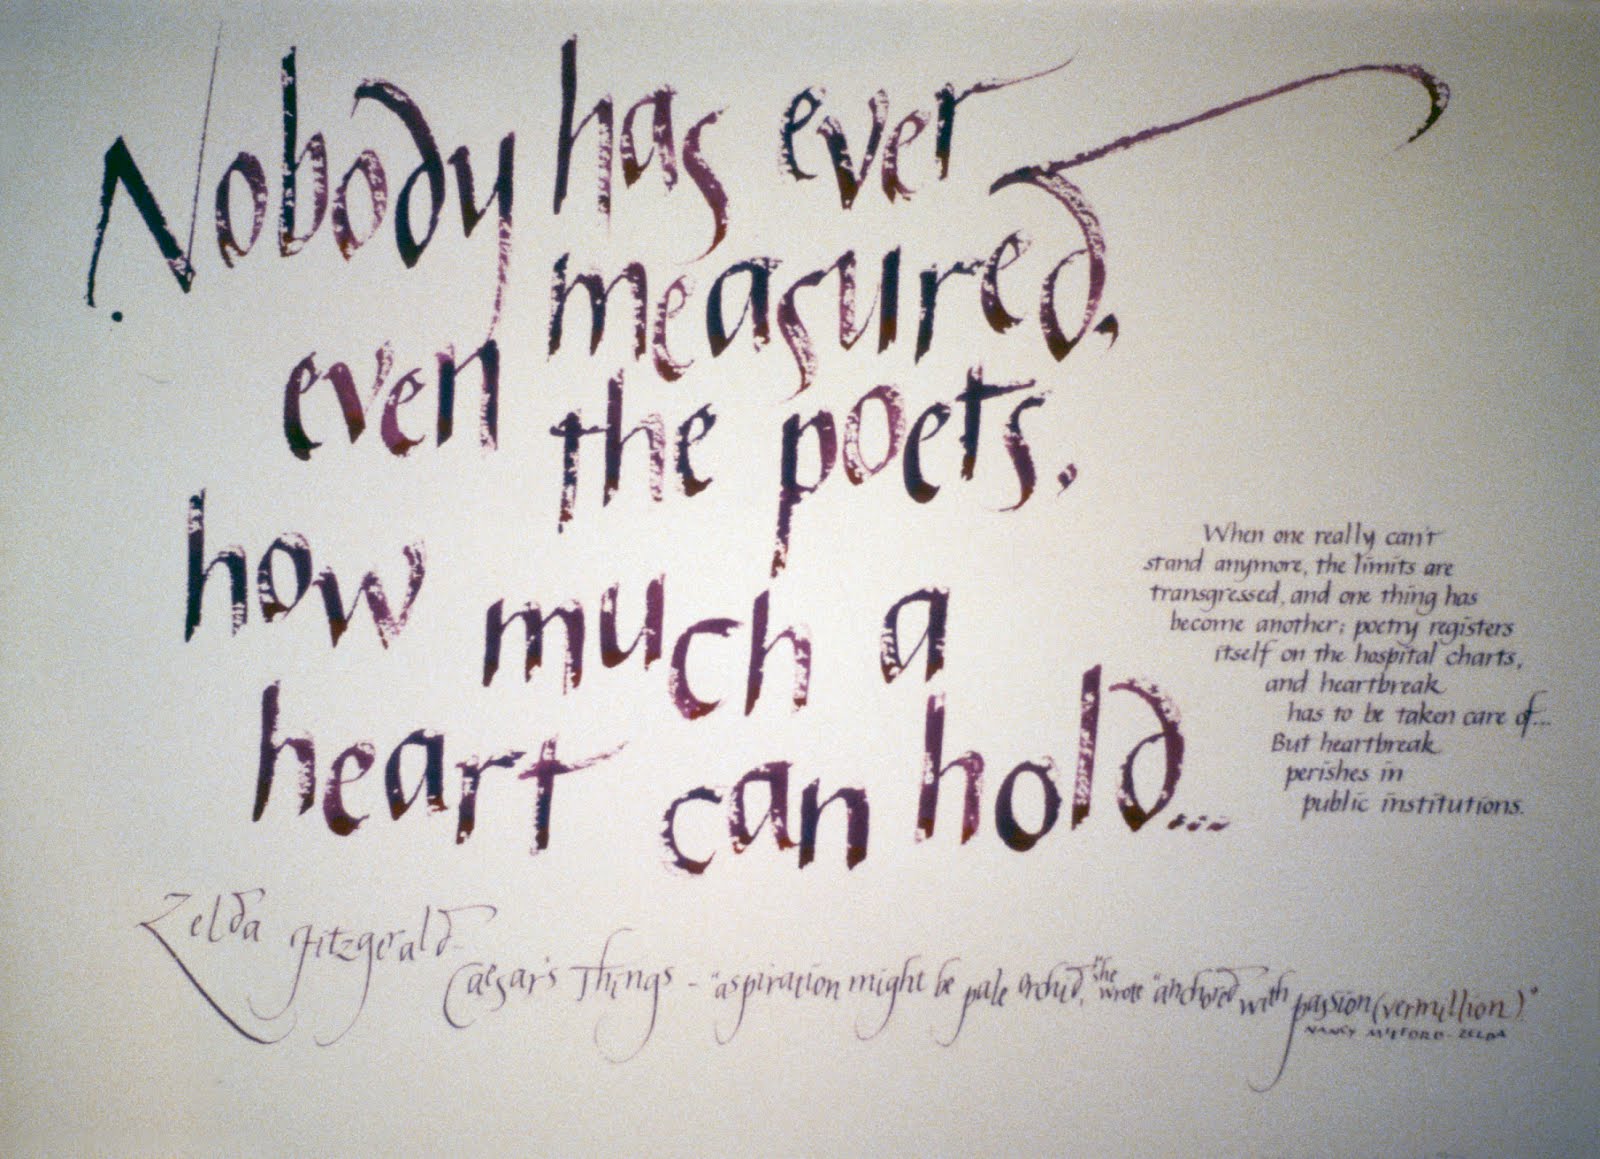 Nobody has ever
measured,
even the poets,
how much a
heart can hold...
When one really can't
stand anymore, the limits are
transgressed, and one thing has
become another; poetry registers
itself on the hospital charts,
and heartbreak
has to be taken care of...
But heartbreak
perishes in
public institutions.
Zelda Fitzgerald
Caesar's Things - "aspiration might be pale orchid," she wrote "anchored with passion (vermillion)."
NANCY MILFORD - ZELDA